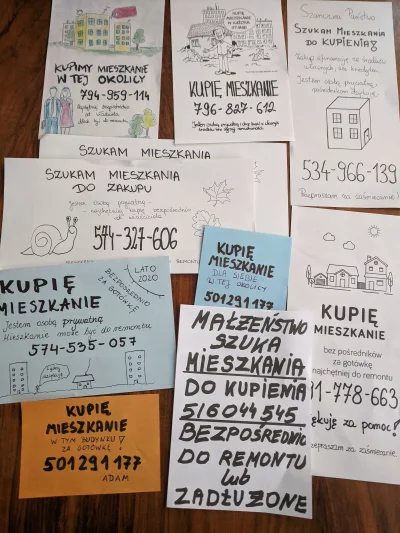 KUPIMY MIESZKANIE
W TEJ OKOLICY
794-959-114
KUPIĘ MIESZKANIE
796-827-612
Szanowni Państwo
SZUKAM MIESZKANIA
DO KUPIENIA
Jestem osobą prywatną
534-966-139
Przepraszam za zaśmiecanie!
SZUKAM MIESZKANIA
SZUKAM MIESZKANIA
DO ZAKUPU
Jestem osobą prywatną
najchętniej kupię bezpośrednio
od właściciela
574-327-606
KUPIĘ
MIESZKANIE
DLA SIEBIE
W TEJ OKOLICY
501291177
LATO
2020
BEZPOŚREDNIO
ZA GOTÓWKĘ
KUPIĘ
MIESZKANIE
Jestem osobą prywatną
Mieszkanie może być do remontu
574-535-057
KUPIĘ
MIESZKANIE
bez pośredników
za gotówkę
najchętniej do remontu
1-778-663
ękuję za pomoc!
zepraszam za zaśmiecanie.
MAŁŻEŃSTWO
SZUKA
MIESZKANIA
DO KUPIENIA
516044545
BEZPOŚREDNIO
DO REMONTU
lub
ZADŁUŻONE
KUPIĘ
MIESZKANIE
W TYM BUDYNKU!
ZA GOTÓWKĘ
501291177
ADAM